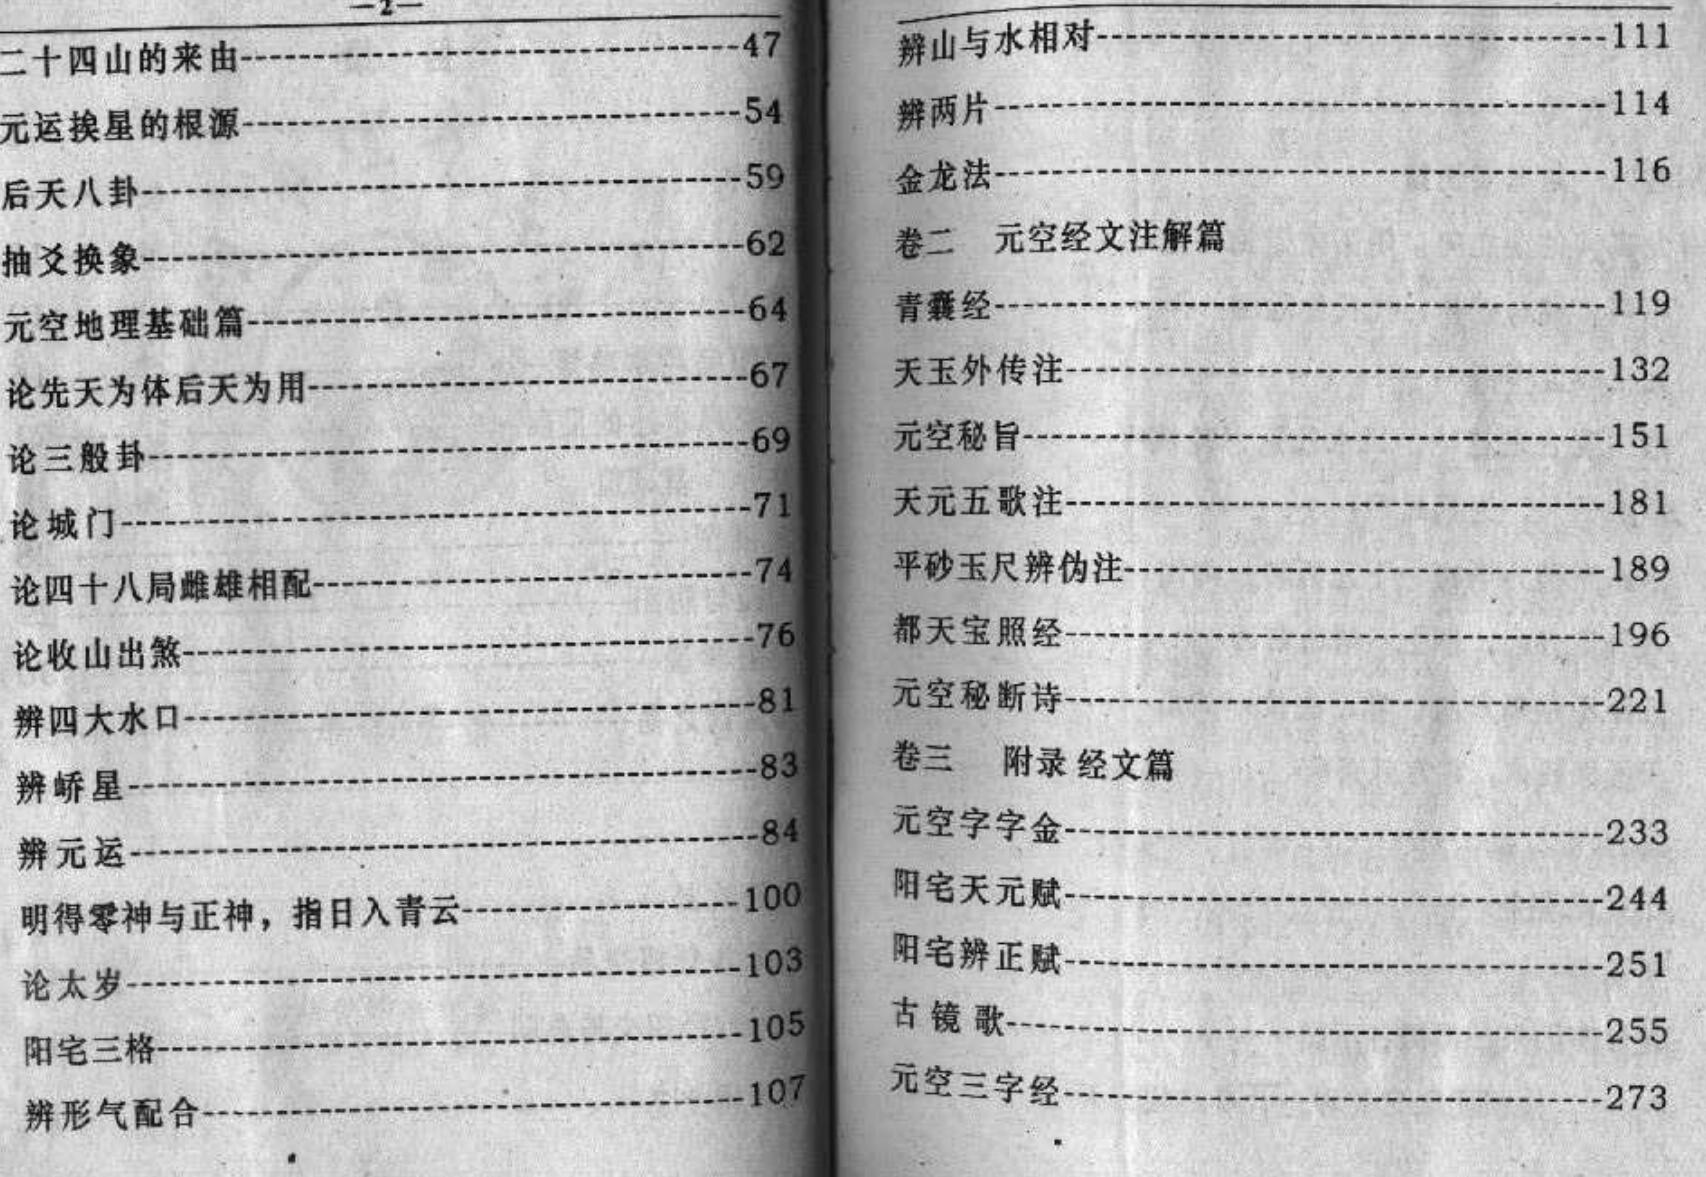 —2—
二十四山的来由------47
元运挨星的根源------54
后天八卦------59
抽爻换象------62
元空地理基础篇------64
论先天为体后天为用------67
论三般卦------69
论城门------71
论四十八局雌雄相配------74
论收山出煞------76
辨四大水口------81
辨峤星------83
辨元运------84
明得零神与正神，指日入青云------100
论太岁------103
阳宅三格------105
辨形气配合------107
辨山与水相对------111
辨两片------114
金龙法------116
卷二 元空经文注解篇
青囊经------119
天玉外传注------132
元空秘旨------151
天元五歌注------181
平砂玉尺辨伪注------189
都天宝照经------196
元空秘断诗------221
卷三 附录 经文篇
元空字字金------233
阳宅天元赋------244
阳宅辨正赋------251
古镜歌------255
元空三字经------273